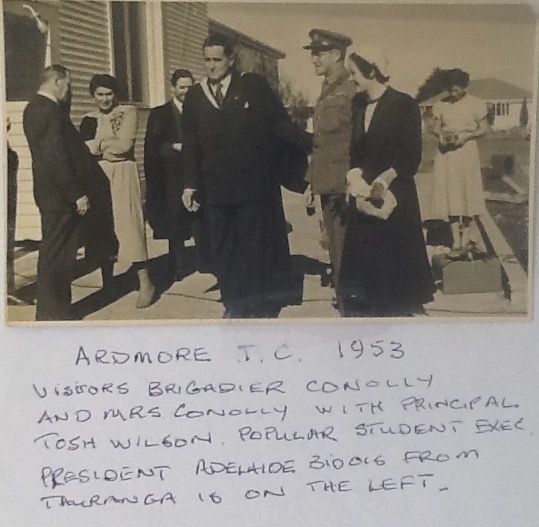 ARDMORE T.C. 1953
VISITORS BRIGADIER CONOLLY
AND MRS. CONOLLY WITH PRINCIPAL
TOSH WILSON. POPULAR STUDENT EXEC.
PRESIDENT ADELAIDE BIDOIS FROM
TAURANGA IS ON THE LEFT.